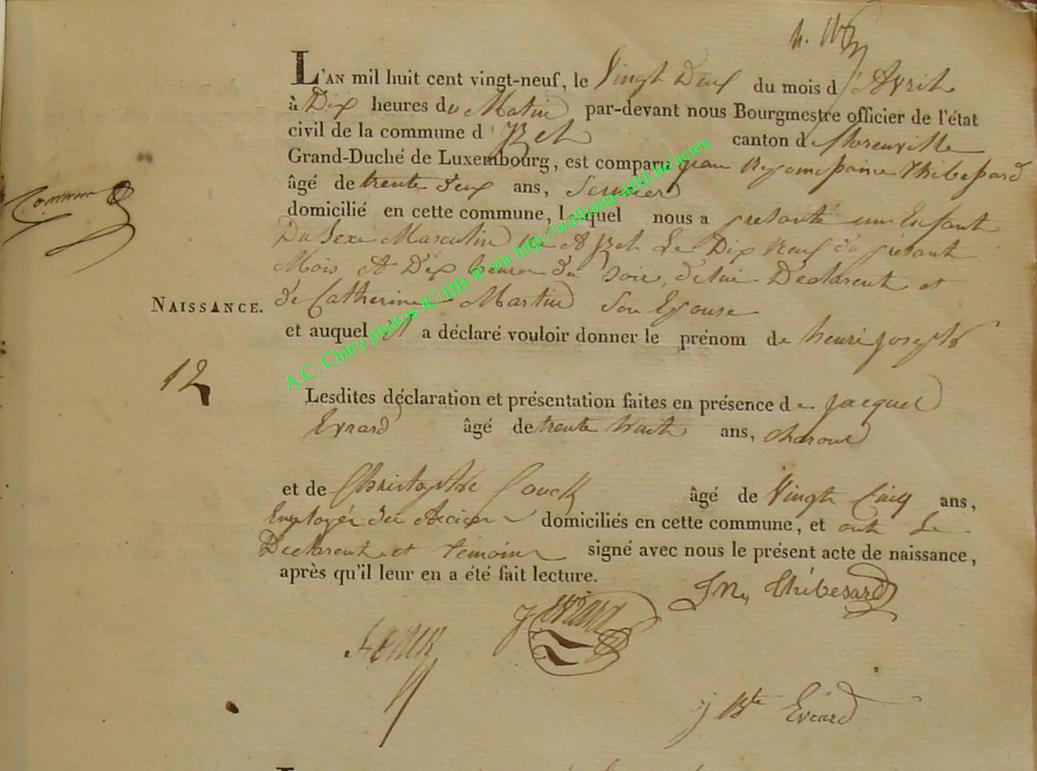 L'AN mil huit cent vingt-neuf, le Vingt Deux du mois d'Avril
à Dix heures du Matin par-devant nous Bourgmestre officier de l'état
civil de la commune d'Izel canton de florenville
Grand-Duché de Luxembourg, est comparu jean Thibesard
âgé de trente deux ans,
domicilié en cette commune, lequel nous a presanté un Enfant
Du Sexe Masculin né A Izel Le Dix neuf du presant
Mois A Dix heures du soir, de lui Déclarent et
de Catherine Martin Son Epouse
NAISSANCE.
et auquel il a déclaré vouloir donner le prénom de henri joseph
12
Lesdites déclaration et présentation faites en présence de jacque
Evrard âgé de trente huit ans, charon
et de Christophe âgé de Vingt Cinq ans,
Employer domiciliés en cette commune, et ont Le
Declarent et témoins signé avec nous le présent acte de naissance,
après qu'il leur en a été fait lecture.
Thibesard
J Bte Evrard
A.C. Chiny photos JC/HB & via http://wallonia-asbl.be/actes